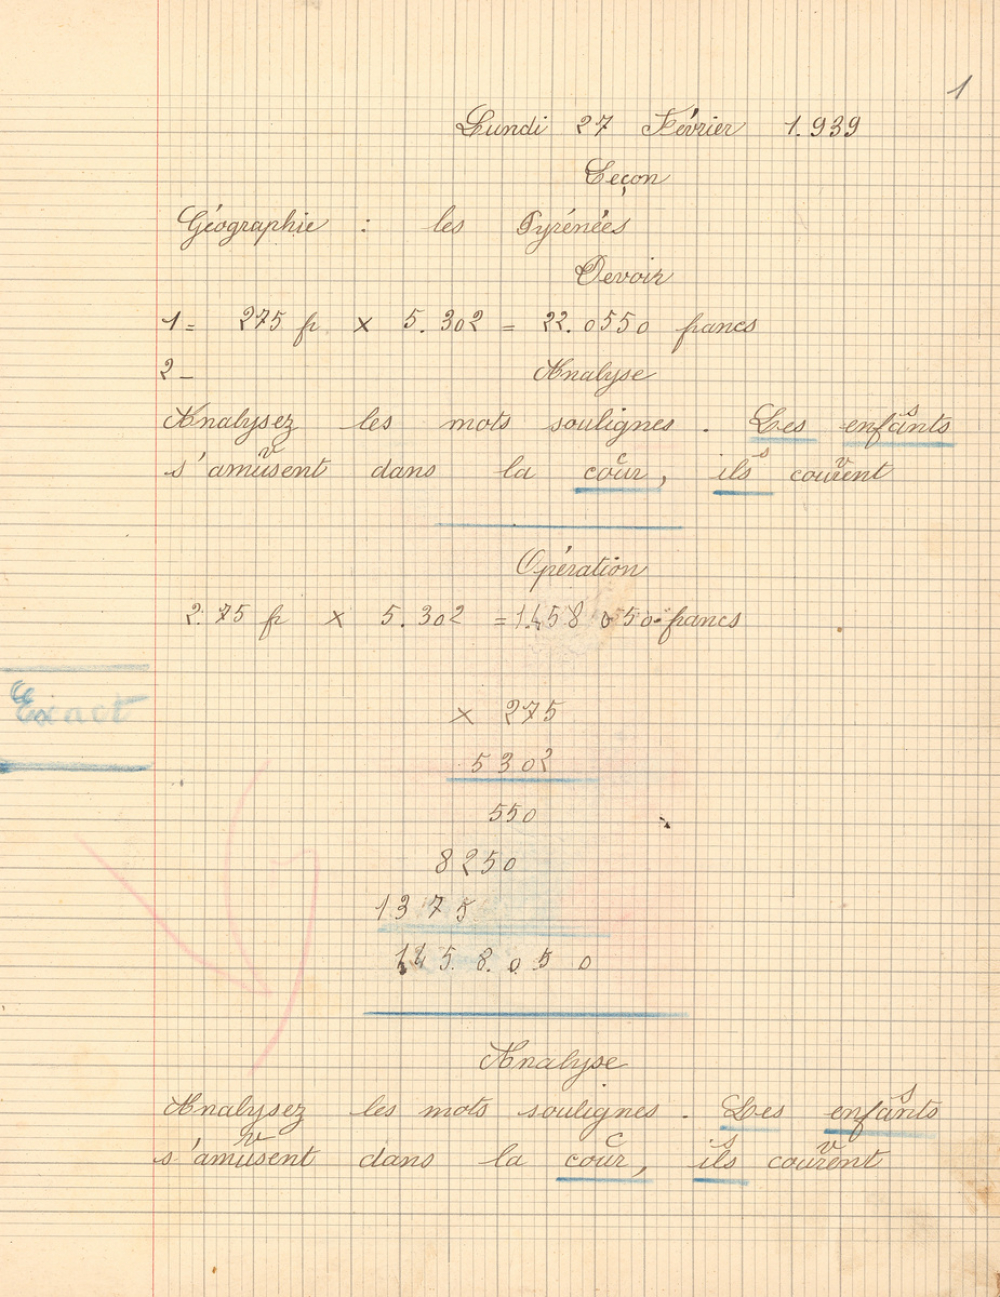 1
Lundi 27 Février 1.939
Leçon
Géographie : les Pyrénées
Devoir
1= 275 fr × 5.302 = 22.0550 francs
2_ Analyse
Analysez les mots soulignes . Les enfants
s
s'amusent dans la cour, ils courent
v c s v
Opération
2.75 fr × 5.302 = 1.458 050 francs
Exact
× 275
5302
550
8250
1375
1458.050
Analyse
Analysez les mots soulignes . Les enfants
s
s'amusent dans la cour, ils courent
v c s v